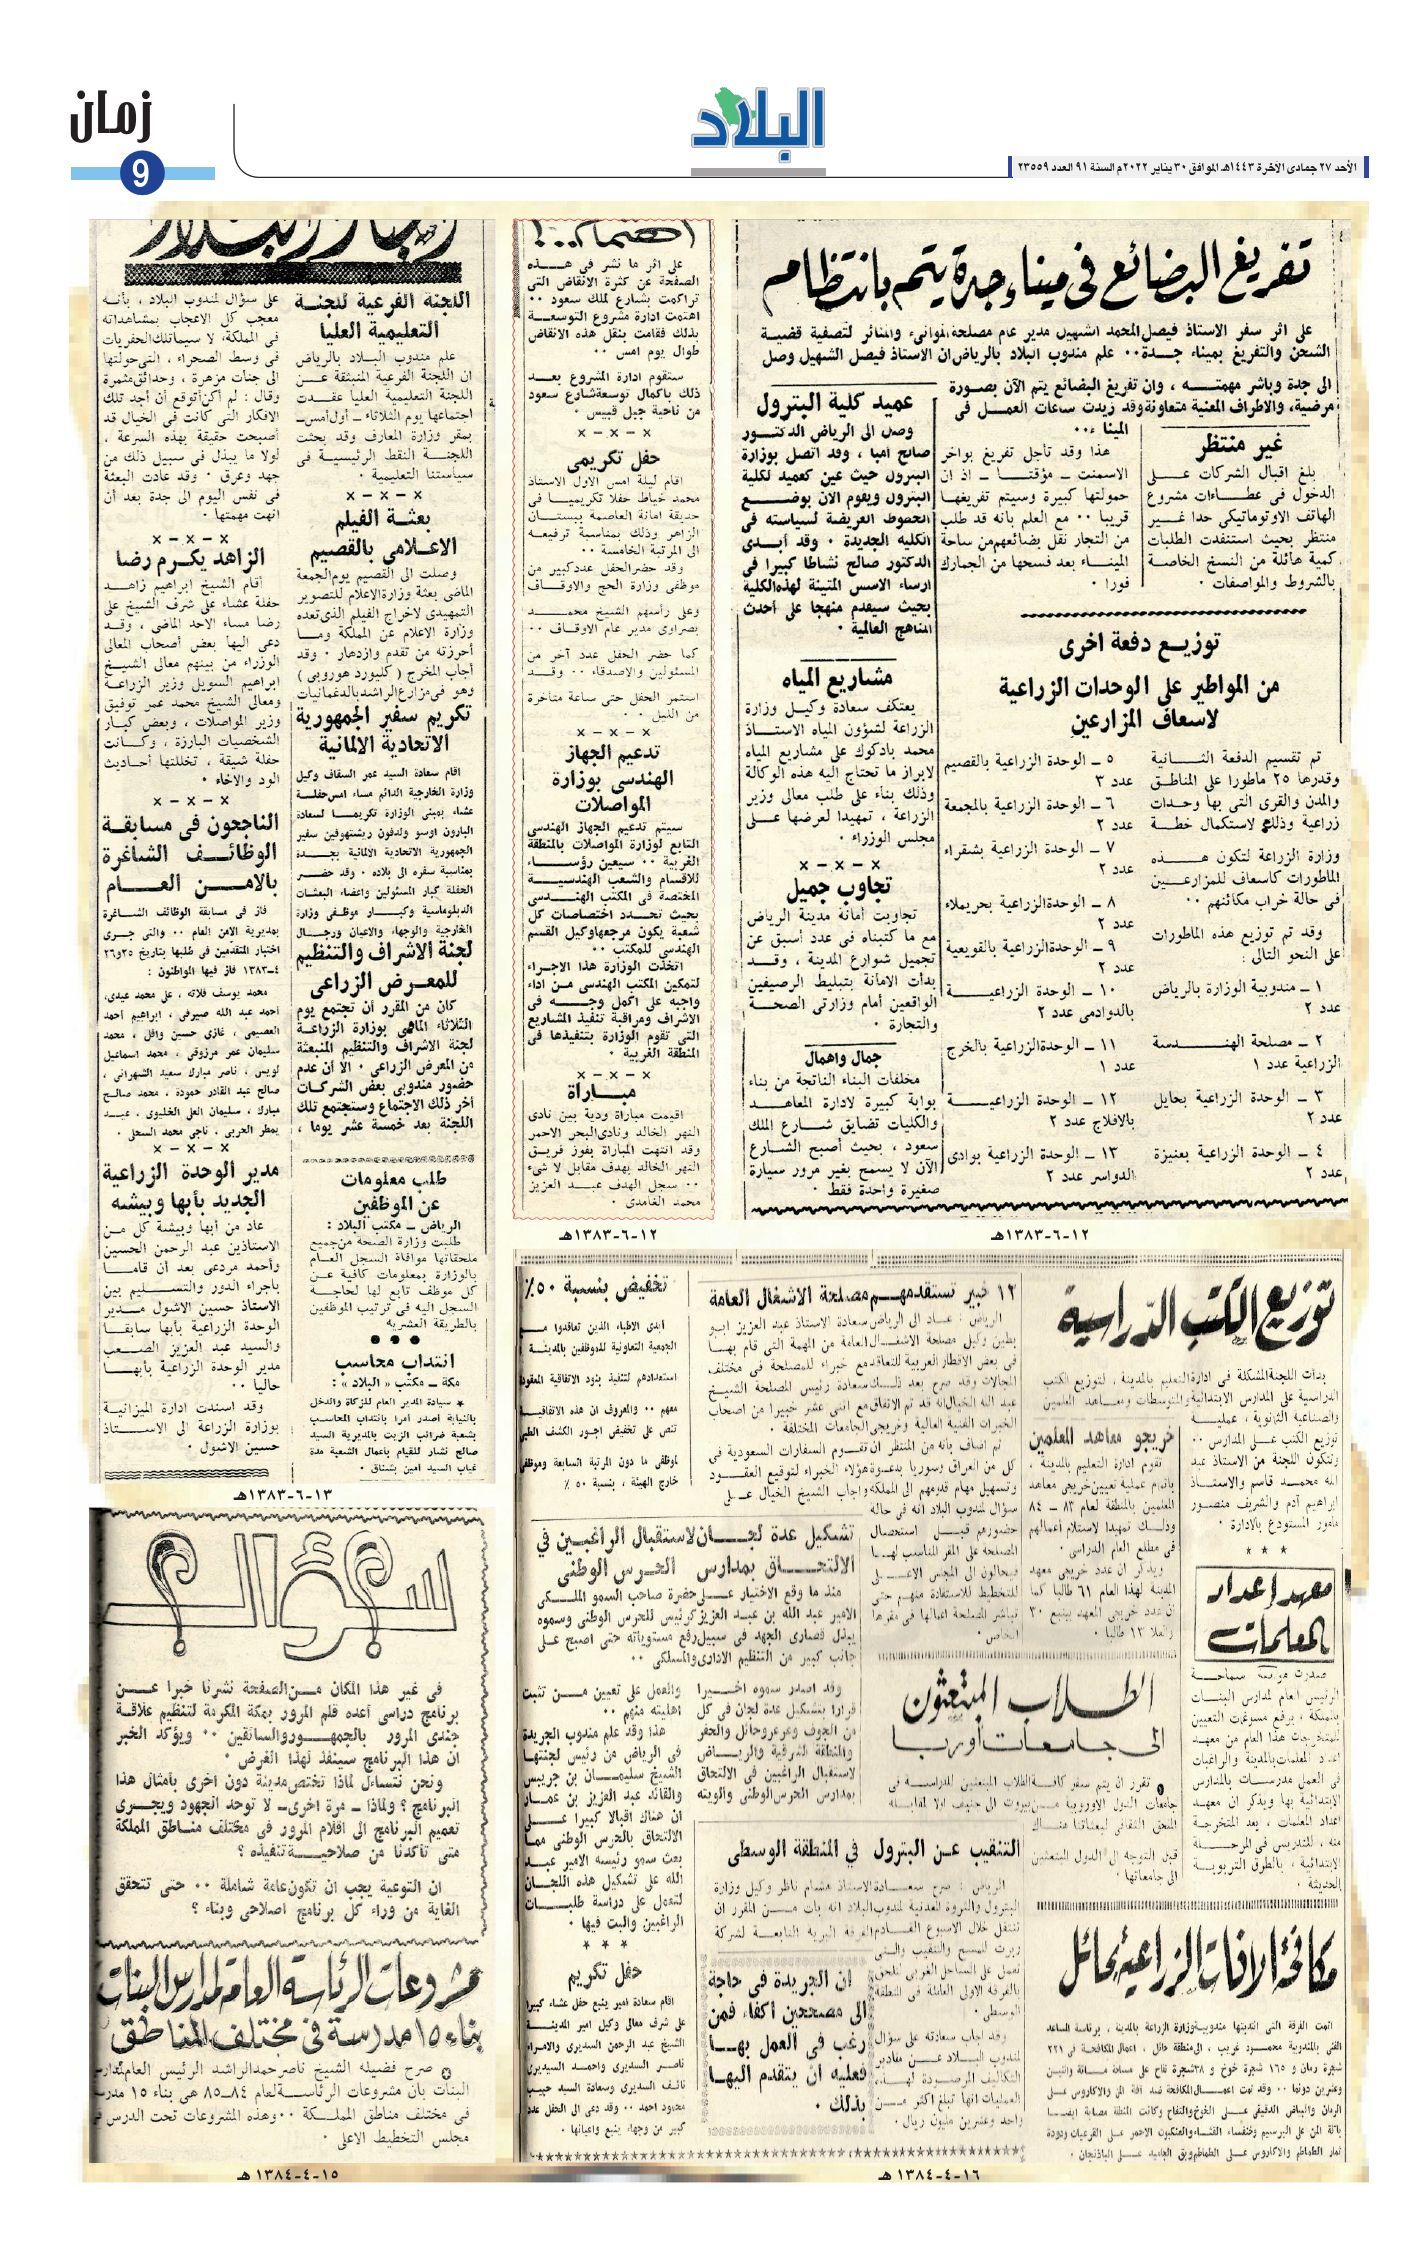 زمان
9
البلاد
الأحد ٢٧ جمادى الآخرة ١٤٤٣هـ الموافق ٣٠ يناير ٢٠٢٢م السنة ٩١ العدد ٢٣٥٥٩
تفريغ البضائع في ميناء جدة يتم بانتظام
على اثر سفر الاستاذ فيصل المحمد الشهيل مدير عام مصلحة الموانىء والمنائر لتصفية قضية
الشحن والتفريغ بميناء جدة ٠٠ علم مندوب البلاد بالرياض ان الاستاذ فيصل الشهيل وصل
الى جدة وباشر مهمته ، وان تفريغ البضائع يتم الآن بصورة
مرضية، والاطراف المعنية متعاونة وقد زيدت ساعات العمل في
الميناء ٠٠
هذا وقد تأجل تفريغ بواخر
الاسمنت ـ مؤقتا ـ اذ ان
حمولتها كبيرة وسيتم تفريغها
قريبا ٠٠ مع العلم بانه قد طلب
من التجار نقل بضائعهم من ساحة
الميناء بعد فسحها من الجمارك
فورا ٠
غير منتظر
بلغ اقبال الشركات على
الدخول في عطاءات مشروع
الهاتف الاوتوماتيكي حدا غير
منتظر بحيث استنفدت الطلبات
كمية هائلة من النسخ الخاصة
بالشروط والمواصفات ٠
توزيع دفعة اخرى
من المواطير على الوحدات الزراعية
لاسعاف المزارعين
تم تقسيم الدفعة الثانية
وقدرها ٢٥ ماطورا على المناطق
والمدن والقرى التي بها وحدات
زراعية وذلك لاستكمال خطة
وزارة الزراعة لتكون هذه
الماطورات كاسعاف للمزارعين
في حالة خراب مكائنهم ٠٠
وقد تم توزيع هذه الماطورات
على النحو التالي :
١ ـ مندوبية الوزارة بالرياض
عدد ٢
٢ ـ مصلحة الهندسة
الزراعية عدد ١
٣ ـ الوحدة الزراعية بحايل
عدد ٢
٤ ـ الوحدة الزراعية بعنيزة
عدد ٢
٥ ـ الوحدة الزراعية بالقصيم
عدد ٣
٦ ـ الوحدة الزراعية بالمجمعة
عدد ٢
٧ ـ الوحدة الزراعية بشقراء
عدد ٢
٨ ـ الوحدة الزراعية بحريملاء
عدد ٢
٩ ـ الوحدة الزراعية بالقويعية
عدد ٢
١٠ ـ الوحدة الزراعية
بالدوادمى عدد ٢
١١ ـ الوحدة الزراعية بالخرج
عدد ١
١٢ ـ الوحدة الزراعية
بالافلاج عدد ٢
١٣ ـ الوحدة الزراعية بوادى
الدواسر عدد ٢
عميد كلية البترول
وصل الى الرياض الدكتور
صالح أمبا ، وقد اتصل بوزارة
البترول حيث عين كعميد لكلية
البترول ويقوم الآن بوضع
الخطوط العريضة لسياسته في
الكلية الجديدة ٠ وقد أبدى
الدكتور صالح نشاطا كبيرا في
ارساء الاسس المتينة لهذه الكلية
بحيث سيقدم منهجا على أحدث
المناهج العالمية ٠
مشاريع المياه
يعتكف سعادة وكيل وزارة
الزراعة لشؤون المياه الاستاذ
محمد بادكوك على مشاريع المياه
لابراز ما تحتاج اليه هذه الوكالة
وذلك بناء على طلب معالى وزير
الزراعة ، تمهيدا لعرضها على
مجلس الوزراء ٠
×-×-×
تجاوب جميل
تجاوبت أمانة مدينة الرياض
مع ما كتبناه في عدد أسبق عن
تجميل شوارع المدينة ، وقد
بدأت الامانة بتبليط الرصيفين
الواقعين أمام وزارتى الصحة
والتجارة ٠
جمال واهمال
مخلفات البناء الناتجة من بناء
بوابة كبيرة لادارة المعاهد
والكليات تضايق شارع الملك
سعود ، بحيث أصبح الشارع
الآن لا يسمح بغير مرور سيارة
صغيرة واحدة فقط ٠
١٢-٦-١٣٨٣هـ
اهتمام..!
على اثر ما نشر في هذه
الصفحة عن كثرة الانقاض التي
تراكمت بشارع الملك سعود ٠٠
اهتمت ادارة مشروع التوسعة
بذلك فقامت بنقل هذه الانقاض
طوال يوم امس ٠٠
ستقوم ادارة المشروع بعد
ذلك باكمال توسعة شارع سعود
من ناحية جبل قبيس ٠
×-×-×
حفل تكريمى
اقام ليلة امس الاول الاستاذ
محمد خياط حفلا تكريميا في
حديقة امانة العاصمة ببستان
الزاهر وذلك بمناسبة ترفيعه
الى المرتبة الخامسة ٠٠
وقد حضر الحفل عدد كبير من
موظفى وزارة الحج والاوقاف
وعلى رأسهم الشيخ محمد
بصراوى مدير عام الاوقاف ٠٠
كما حضر الحفل عدد آخر من
المسئولين والاصدقاء ٠٠ وقد
استمر الحفل حتى ساعة متأخرة
من الليل ٠٠
×-×-×
تدعيم الجهاز
الهندسى بوزارة
المواصلات
سيتم تدعيم الجهاز الهندسى
التابع لوزارة المواصلات بالمنطقة
الغربية ٠٠ سيعين رؤساء
للاقسام والشعب الهندسية
المختصة في المكتب الهندسى
بحيث تحدد اختصاصات كل
شعبة يكون مرجعها وكيل القسم
الهندسى للمكتب ٠٠
اتخذت الوزارة هذا الاجراء
لتمكين المكتب الهندسى من اداء
واجبه على اكمل وجه في
الاشراف ومراقبة تنفيذ المشاريع
التي تقوم الوزارة بتنفيذها في
المنطقة الغربية ٠
×-×-×
مباراة
اقيمت مباراة ودية بين نادى
النهر الخالد ونادى البحر الاحمر
وقد انتهت المباراة بفوز فريق
النهر الخالد بهدف مقابل لا شىء
٠٠ سجل الهدف عبد العزيز
محمد الغامدى ٠
١٢-٦-١٣٨٣هـ
اللجنة الفرعية للجنة
التعليمية العليا
علم مندوب البلاد بالرياض
ان اللجنة الفرعية المنبثقة عن
اللجنة التعليمية العليا عقدت
اجتماعها يوم الثلاثاء ـ أول أمس ـ
بمقر وزارة المعارف وقد بحثت
اللجنة النقط الرئيسية في
سياستنا التعليمية ٠
×-×-×
بعثة الفيلم
الاعلامى بالقصيم
وصلت الى القصيم يوم الجمعة
الماضى بعثة وزارة الاعلام للتصوير
التمهيدى لاخراج الفيلم الذى تعده
وزارة الاعلام عن المملكة وما
أحرزته من تقدم وازدهار ٠ وقد
أجاب المخرج ( كليبورد هوروبى )
وهو في مزارع الراشد بالدغمانيات
تكريم سفير الجمهورية
الاتحادية الالمانية
اقام سعادة السيد عمر السقاف وكيل
وزارة الخارجية الدائم مساء امس حفلة
عشاء بمبنى الوزارة تكريما لسعادة
البارون اوسو ولدفون ريشتهوفين سفير
الجمهورية الاتحادية الالمانية بجدة
بمناسبة سفره الى بلاده ٠ وقد حضر
الحفلة كبار المسئولين واعضاء البعثات
الدبلوماسية وكبار موظفى وزارة
الخارجية والوجهاء والاعيان ورجال
لجنة الاشراف والتنظيم
للمعرض الزراعى
كان من المقرر أن تجتمع يوم
الثلاثاء الماضى بوزارة الزراعة
لجنة الاشراف والتنظيم المنبعثة
من المعرض الزراعى ٠ الا أن عدم
حضور مندوبى بعض الشركات
أخر ذلك الاجتماع وستجتمع تلك
اللجنة بعد خمسة عشر يوما ،
طلب معلومات
عن الموظفين
الرياض ـ مكتب البلاد :
طلبت وزارة الصحة من جميع
ملحقاتها موافاة السجل العام
بالوزارة بمعلومات كافية عن
كل موظف تابع لها لحاجة
السجل اليه في ترتيب الموظفين
بالطريقة العشرية
انتداب محاسب
مكة ـ مكتب « البلاد » :
* سيادة المدير العام للزكاة والدخل
بالنيابة اصدر امرا بانتداب المحاسب
بشعبة ضرائب الزيت بالمديرية السيد
صالح نشار للقيام باعمال الشعبة مدة
غياب السيد امين بشناق ٠
على سؤال لمندوب البلاد ، بأنه
معجب كل الاعجاب بمشاهداته
في المملكة، لا سيما تلك الحفريات
في وسط الصحراء ، التي حولتها
الى جنات مزهرة ، وحدائق مثمرة
وقال : لم أكن أتوقع أن أجد تلك
الافكار التي كانت في الخيال قد
أصبحت حقيقة بهذه السرعة ،
لولا ما يبذل في سبيل ذلك من
جهد وعرق ٠ وقد عادت البعثة
في نفس اليوم الى جدة بعد أن
انهت مهمتها ٠
×-×-×
الزاهد يكرم رضا
أقام الشيخ ابراهيم زاهد
حفلة عشاء على شرف الشيخ على
رضا مساء الاحد الماضى ، وقد
دعى اليها بعض أصحاب المعالى
الوزراء من بينهم معالى الشيخ
ابراهيم السويل وزير الزراعة
ومعالى الشيخ محمد عمر توفيق
وزير المواصلات ، وبعض كبار
الشخصيات البارزة ، وكانت
حفلة شيقة ، تخللتها أحاديث
الود والاخاء ٠
×-×-×
الناجحون في مسابقة
الوظائف الشاغرة
بالامن العام
فاز في مسابقة الوظائف الشاغرة
بمديرية الامن العام ٠٠ والتي جرى
اختبار المتقدمين في طلبها بتاريخ ٢٥و٢٦
ـ٤ـ١٣٨٣ فاز فيها المواطنون :
محمد يوسف فلاته ، على محمد عيدى،
أحمد عبد الله صيرفى ، ابراهيم أحمد
العصيمى ، غازى حسين وافل ، محمد
سليمان عمر مرزوقى ، محمد اسماعيل
لويس ، ناصر مبارك سعيد الشهرانى ،
صالح عبد القادر حمودة ، محمد صالح
مبارك ، سليمان العلى الخليوى ، عبد
×-×-×
مدير الوحدة الزراعية
الجديد بأبها وبيشه
عاد من أبها وبيشة كل من
الاستاذين عبد الرحمن الحسين
وأحمد مردعى بعد أن قاما
باجراء الدور والتسليم بين
الاستاذ حسين الاشول مدير
الوحدة الزراعية بأبها سابقا
والسيد عبد العزيز الصعب
مدير الوحدة الزراعية بأبها
حاليا ٠٠
وقد اسندت ادارة الميزانية
بوزارة الزراعة الى الاستاذ
حسين الاشول ٠
١٣-٦-١٣٨٣هـ
سؤال
في غير هذا المكان من الصفحة نشرنا خبرا عن
برنامج دراسى أعده قلم المرور بمكة المكرمة لتنظيم علاقة
جندى المرور بالجمهور والسائقين ٠٠ ويؤكد الخبر
ان هذا البرنامج سينفذ لهذا الغرض ٠
ونحن نتساءل لماذا تختص مدينة دون اخرى بأمثال هذا
البرنامج ؟ ولماذا ـ مرة اخرى ـ لا توحد الجهود ويجرى
تعميم البرنامج الى اقلام المرور في مختلف مناطق المملكة
متى تأكدنا من صلاحية تنفيذه ؟
ان التوعية يجب ان تكون عامة شاملة ٠٠ حتى تتحقق
الغاية من وراء كل برنامج اصلاحى وبناء ؟
مشروعات الرئاسة العامة لمدارس البنات
بناء ١٥ مدرسة في مختلف المناطق
صرح فضيله الشيخ ناصر حمد الراشد الرئيس العام لمدارس
البنات بان مشروعات الرئاسة لعام ٨٤ـ٨٥ هى بناء ١٥
في مختلف مناطق المملكة ٠٠ وهذه المشروعات تحت الدرس في
مجلس التخطيط الاعلى ٠
١٥-٤-١٣٨٤هـ
توزيع الكتب الدراسية
بدأت اللجنة المشكلة في ادارة التعليم بالمدينة ، لتوزيع الكتب
الدراسية على المدارس الابتدائية والمتوسطات ومعاهد المعلمين
والصناعية الثانوية ، عملية
توزيع الكتب على المدارس ٠٠
وتتكون اللجنة من الاستاذ عبد
الله محمد قاسم والاستاذ
ابراهيم آدم والشريف منصور
مأمور المستودع بالادارة ٠
* * *
معهد اعداد
المعلمات
صدرت موافقة سماحة
الرئيس العام لمدارس البنات
بالمملكة ، برفع مسوغات التعيين
للمتخرجات هذا العام من معهد
اعداد المعلمات بالمدينة والراغبات
في العمل مدرسات بالمدارس
الابتدائية بها ويذكر ان معهد
اعداد المعلمات ، يعد المتخرجة
منه ، للتدريس في المرحلة
الابتدائية ، بالطرق التربوية
الحديثة ٠
خريجو معاهد المعلمين
تقوم ادارة التعليم بالمدينة ،
باتمام عملية تعيين خريجى معاهد
المعلمين بالمنطقة لعام ٨٣ ـ ٨٤
وذلك تمهيدا لاستلام أعمالهم
في مطلع العام الدراسى ٠
ويذكر ان عدد خريجى معهد
المدينة لهذا العام ٦١ طالبا كما
ان عدد خريجى المعهد بينبع ٣٠
والعلا ١٣ طالبا ٠
١٢ خبير تستقدمهم مصلحة الاشغال العامة
الرياض : عاد الى الرياض سعادة الاستاذ عبد العزيز ابو
بطين وكيل مصلحة الاشغال العامة من المهمة التي قام بها
في بعض الاقطار العربية للتعاقد مع خبراء للمصلحة في مختلف
المجالات وقد صرح بعد ذلك سعادة رئيس المصلحة الشيخ
عبد الله الخيال انه قد تم الاتفاق مع اثنى عشر خبيرا من اصحاب
الخبرات الفنية العالية وخريجى الجامعات المختلفة ٠
ثم اضاف بانه من المنتظر ان تقوم السفارات السعودية في
كل من العراق وسوريا بدعوة هؤلاء الخبراء لتوقيع العقود
وتسهيل مهام قدومهم الى المملكة واجاب الشيخ الخيال على
سؤال لمندوب البلاد انه في حالة
حضورهم قبل استحصال
المصلحة على المقر المناسب لها
فيحالون الى المجلس الاعلى
للتخطيط للاستفادة منهم حتى
تباشر المصلحة اعمالها في مقرها
الخاص ٠
تخفيض بنسبة ٥٠٪
ابدى الاطباء الذين تعاقدوا مع
الجمعية التعاونية للموظفين بالمدينة
استعدادهم لتنفيذ بنود الاتفاقية المعقودة
معهم ٠٠ والمعروف ان هذه الاتفاقية
تنص على تخفيض اجور الكشف الطبى
لموظفى ما دون المرتبة السابعة وموظفى
خارج الهيئة ، بنسبة ٥٠ ٪
تشكيل عدة لجان لاستقبال الراغبين في
الالتحاق بمدارس الحرس الوطنى
منذ ما وقع الاختيار على حضرة صاحب السمو الملكى
الامير عبد الله بن عبد العزيز كرئيس للحرس الوطنى وسموه
يبذل قصارى الجهد في سبيل رفع مستوياته حتى اصبح على
جانب كبير من التنظيم الادارى والمسلكى ٠٠
وقد اصدر سموه اخيرا
قرارا بتشكيل عدة لجان في كل
من الجوف وعرعر وحائل والحفر
والمنطقة الشرقية والرياض
لاستقبال الراغبين في الالتحاق
بمدارس الحرس الوطنى والويته
والعمل على تعيين من تثبت
اهليته منهم ٠٠
هذا وقد علم مندوب الجريدة
في الرياض من رئيس لجنتها
الشيخ سليمان بن جريبس
والقائد عبد العزيز بن عمار
ان هناك اقبالا كبيرا على
الالتحاق بالحرس الوطنى مما
بعث سمو رئيسه الامير عبد
الله على تشكيل هذه اللجان
لتعمل على دراسة طلبات
الراغبين والبت فيها ٠
* * *
الطلاب المبتعثون
الى جامعات أوربا
تقرر ان يتم سفر كافة الطلاب المبتعثين للدراسة في
جامعات الدول الاوروبية من بيروت الى جنيف اولا لمقابلة
الملحق الثقافى لبعثاتنا هناك
قبل التوجه الى الدول المبتعثين
الى جامعاتها ٠
التنقيب عن البترول في المنطقة الوسطى
الرياض : صرح سعادة الاستاذ هشام ناظر وكيل وزارة
البترول والثروة المعدنية لمندوب البلاد انه بات من المقرر ان
تنتقل خلال الاسبوع القادم الفرقة البرية التابعة لشركة
تعمل على الساحل الغربى لتلحق
بالفرقة الاولى العاملة في المنطقة
الوسطى ٠
وقد اجاب سعادته على سؤال
لمندوب البلاد عن مقادير
التكاليف المرصودة لهذه
العمليات انها تبلغ اكثر من
واحد وعشرين مليون ريال ٠
ان الجريدة في حاجة
الى مصححين أكفاء فمن
رغب في العمل بها
فعليه ان يتقدم اليها
بذلك ٠
حفل تكريم
اقام سعادة امير ينبع حفل عشاء كبيرا
على شرف معالى وكيل امير المدينة
الشيخ عبد الرحمن السديرى والامراء
ناصر السديرى واحمد السديرى
نائف السديرى وسعادة السيد حبيب
محمود احمد ٠٠ وقد دعى الى الحفل عدد
كبير من وجهاء ينبع واعيانها ٠
مكافحة الآفات الزراعية بحائل
اتمت الفرقة التي انتدبتها مندوبية وزارة الزراعة بالمدينة ، برئاسة المساعد
الفنى بالمندوبية محمود غريب ، الى منطقة حائل ، اعمال المكافحة في ٢٢١
شجرة رمان و ١٦٥ شجرة خوخ و ٣٨ شجرة تفاح على مساحة مائة واثنين
وعشرين دونما ٠٠ وقد تمت اعمال المكافحة ضد آفة المن والاكاروس على
الرمان والبياض الدقيقى على الخوخ والتفاح وكانت المنطقة مصابة ايضا
بآفة المن على البرسيم وخنفساء القثاء والعنكبوت الاحمر على القرعيات ودودة
ثمار الطماطم والاكاروس على الطماطم وبق الجاميد على الباذنجان ٠
١٦-٤-١٣٨٤هـ